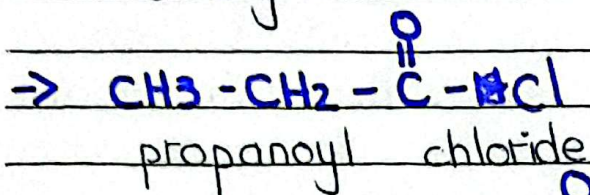 O
||
-> CH3 - CH2 - C - Cl
propanoyl chloride
O